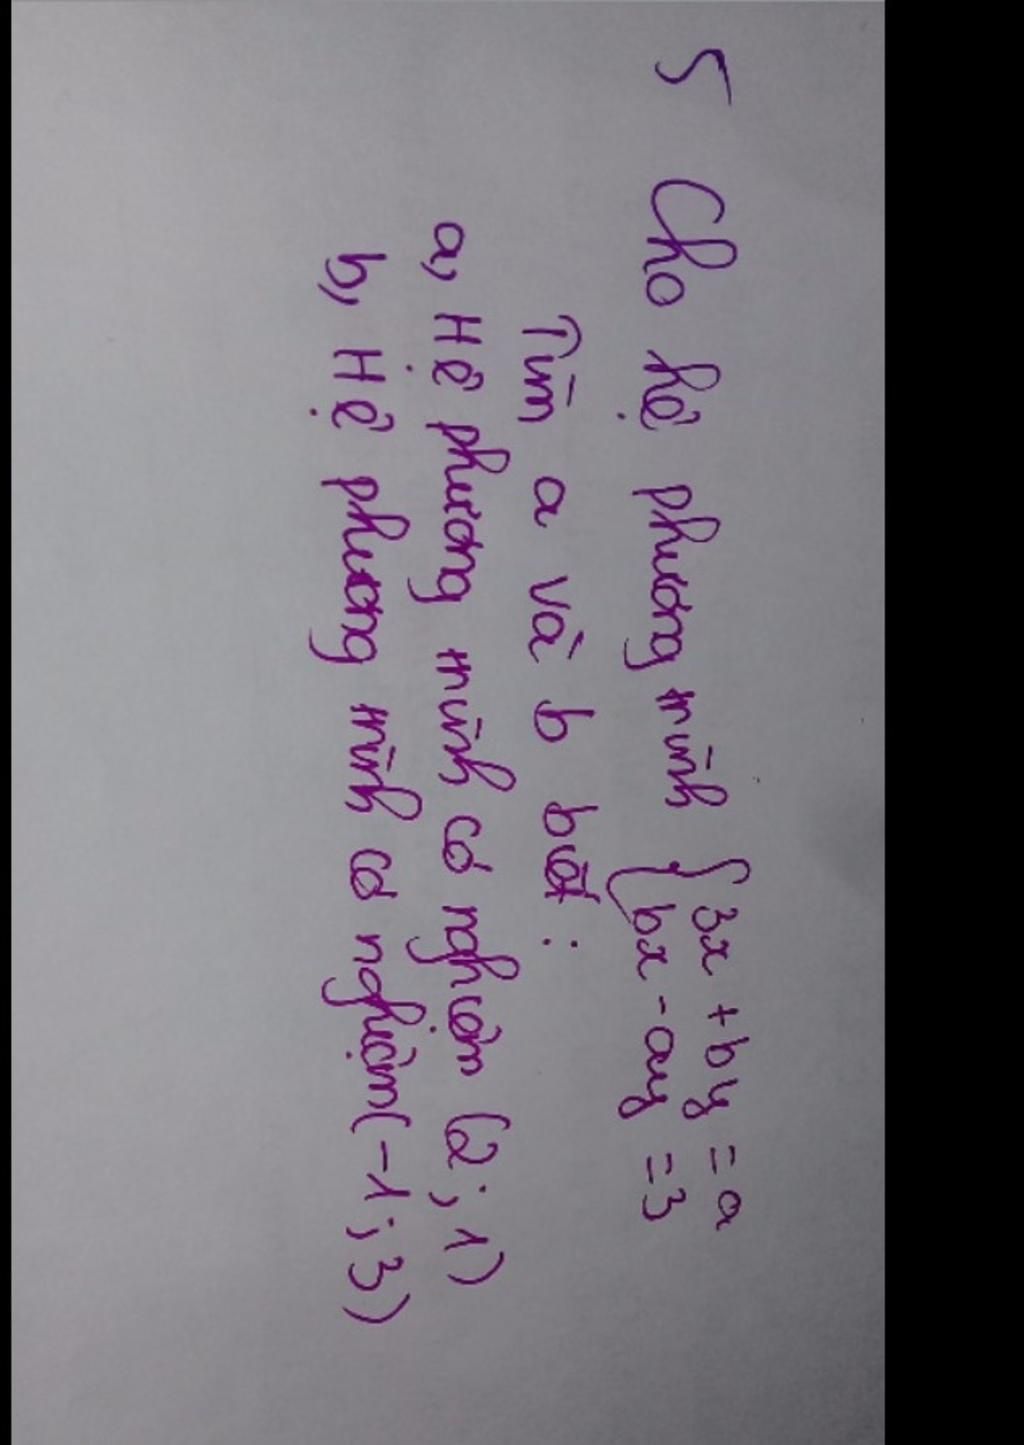 5 Cho hệ phương trình { 3x + by = a
bx - ay = 3
Tìm a và b biết :
a, Hệ phương trình có nghiệm (2 ; 1)
b, Hệ phương trình có nghiệm (-1 ; 3)